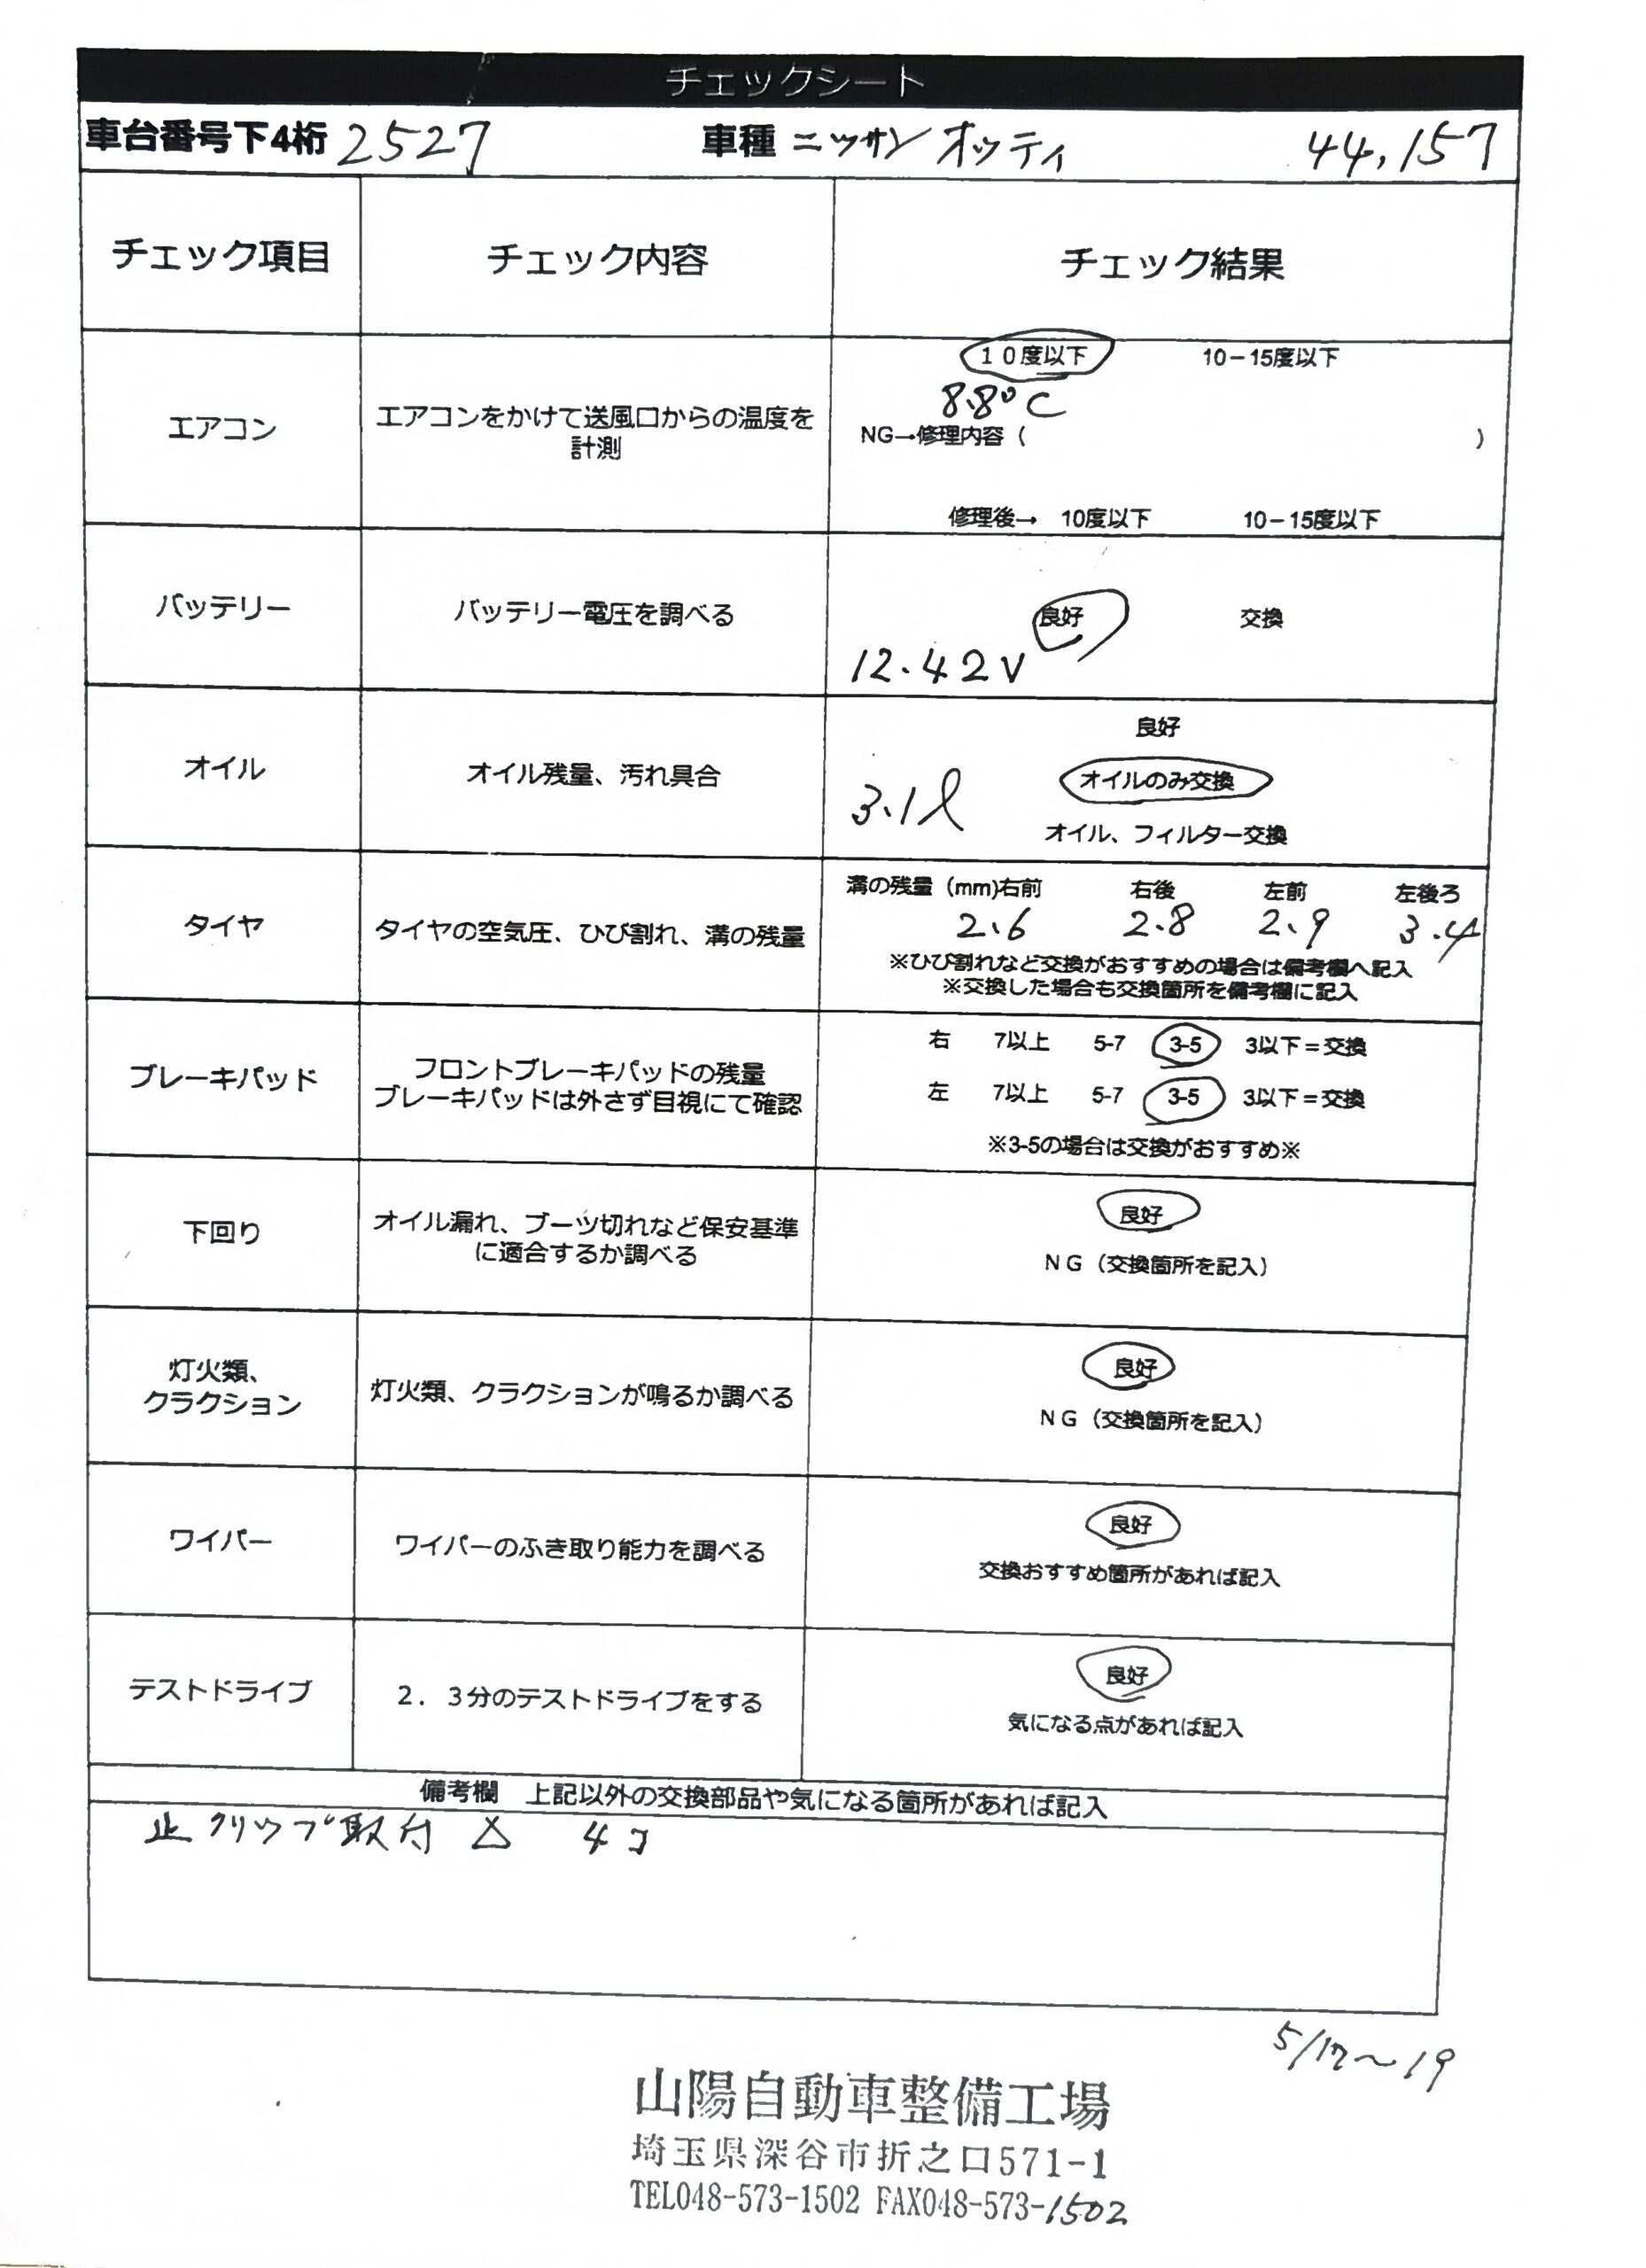 チェックシート
車台番号下4桁 2527 車種 ニッサン オッティ 44,157
チェック項目 チェック内容 チェック結果
エアコン
エアコンをかけて送風口からの温度を
計測
10度以下 10-15度以下
8.8°C
NG→修理内容 ( )
修理後→ 10度以下 10-15度以下
バッテリー
バッテリー電圧を調べる
良好 交換
12.42V
オイル
オイル残量、汚れ具合
良好
3.1ℓ オイルのみ交換
オイル、フィルター交換
タイヤ
タイヤの空気圧、ひび割れ、溝の残量
溝の残量 (mm)右前 右後 左前 左後ろ
2.6 2.8 2.9 3.4
※ひび割れなど交換がおすすめの場合は備考欄へ記入
※交換した場合も交換箇所を備考欄に記入
ブレーキパッド
フロントブレーキパッドの残量
ブレーキパッドは外さず目視にて確認
右 7以上 5-7 3-5 3以下=交換
左 7以上 5-7 3-5 3以下=交換
※3-5の場合は交換がおすすめ※
下回り
オイル漏れ、ブーツ切れなど保安基準
に適合するか調べる
良好
NG (交換箇所を記入)
灯火類、
クラクション
灯火類、クラクションが鳴るか調べる
良好
NG (交換箇所を記入)
ワイパー
ワイパーのふき取り能力を調べる
良好
交換おすすめ箇所があれば記入
テストドライブ
2.3分のテストドライブをする
良好
気になる点があれば記入
備考欄 上記以外の交換部品や気になる箇所があれば記入
止クリップ取付 △ 4コ
5/17~19
山陽自動車整備工場
埼玉県深谷市折之口571-1
TEL048-573-1502 FAX048-573-1502